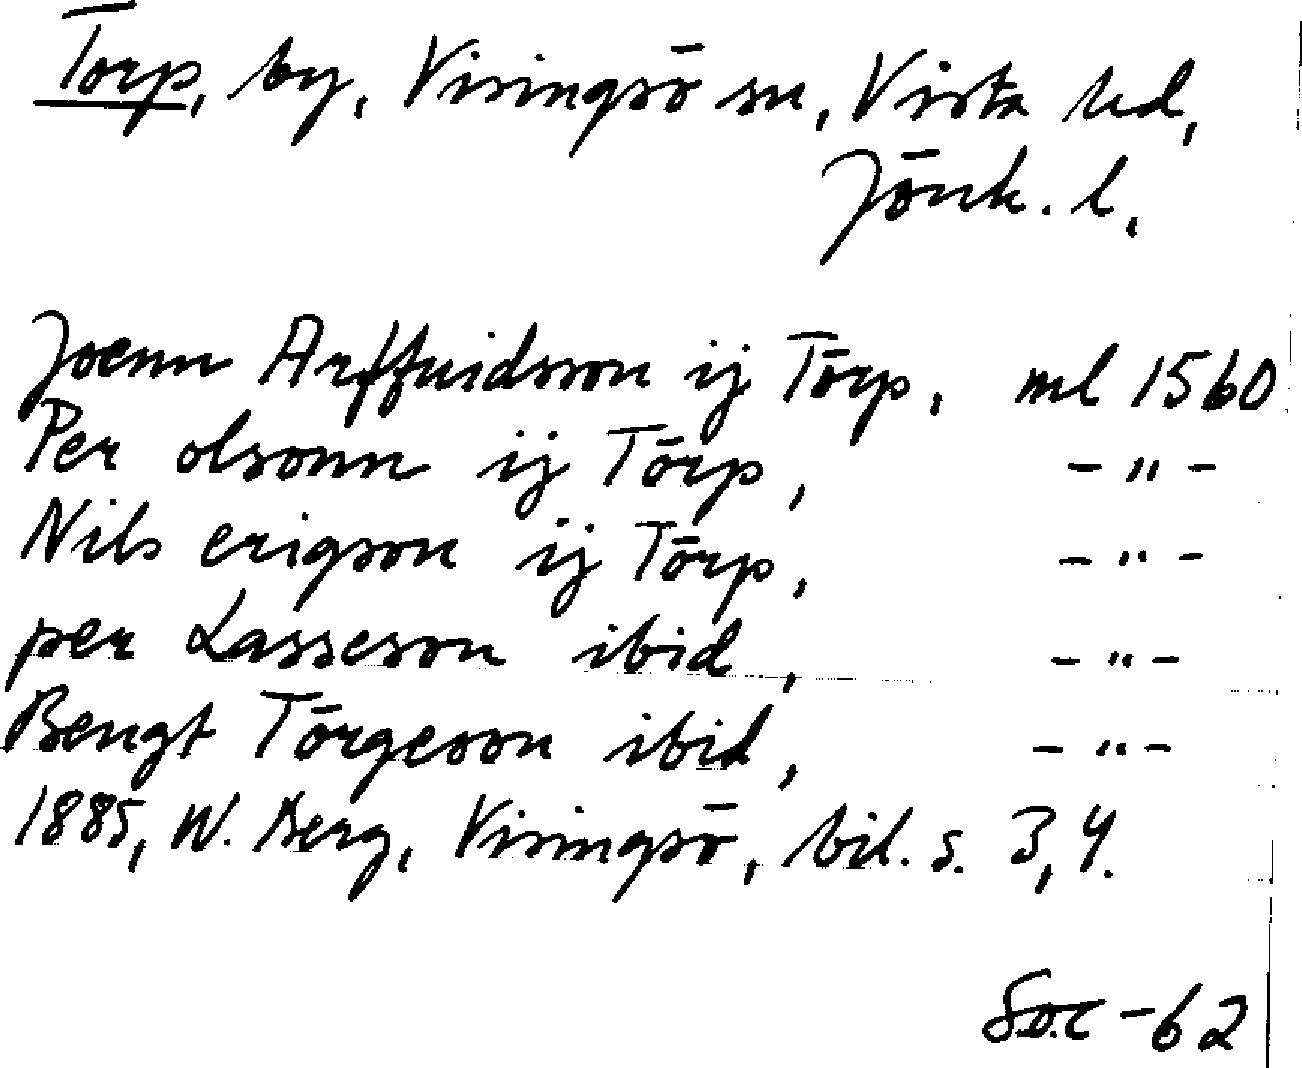 Torp, by, Visingsö sn, Vista hd,
Jönk. l.
Joenn Arffuidsson ij Törp, ml 1560
Per olsonn ij Törp, -"-
Nils erigson ij Törp, -"-
per Lasseson ibid, -"-
Bengt Törgeson ibid, -"-
1885, W. Berg, Visingsö, bil. s. 3, 4.
SOC -62